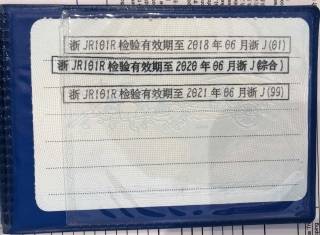 浙 JR101R 检验有效期至 2018 年 06 月浙 J(01)
浙 JR101R 检验有效期至 2020 年 06 月浙 J(综合)
浙 JR101R 检验有效期至 2021 年 06 月浙 J(99)